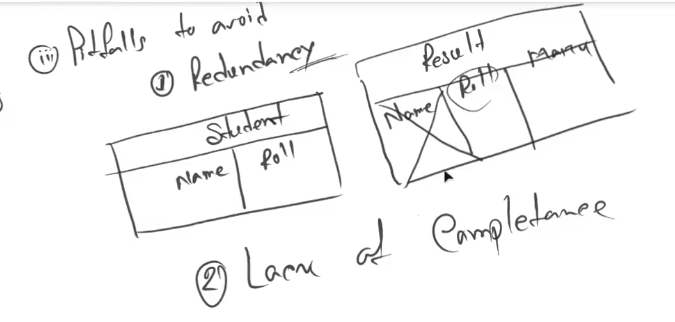 (iii) Pitfalls to avoid
① Redundancy
Student
Name Roll
Result
Name Roll Marks
② Lack of Completance